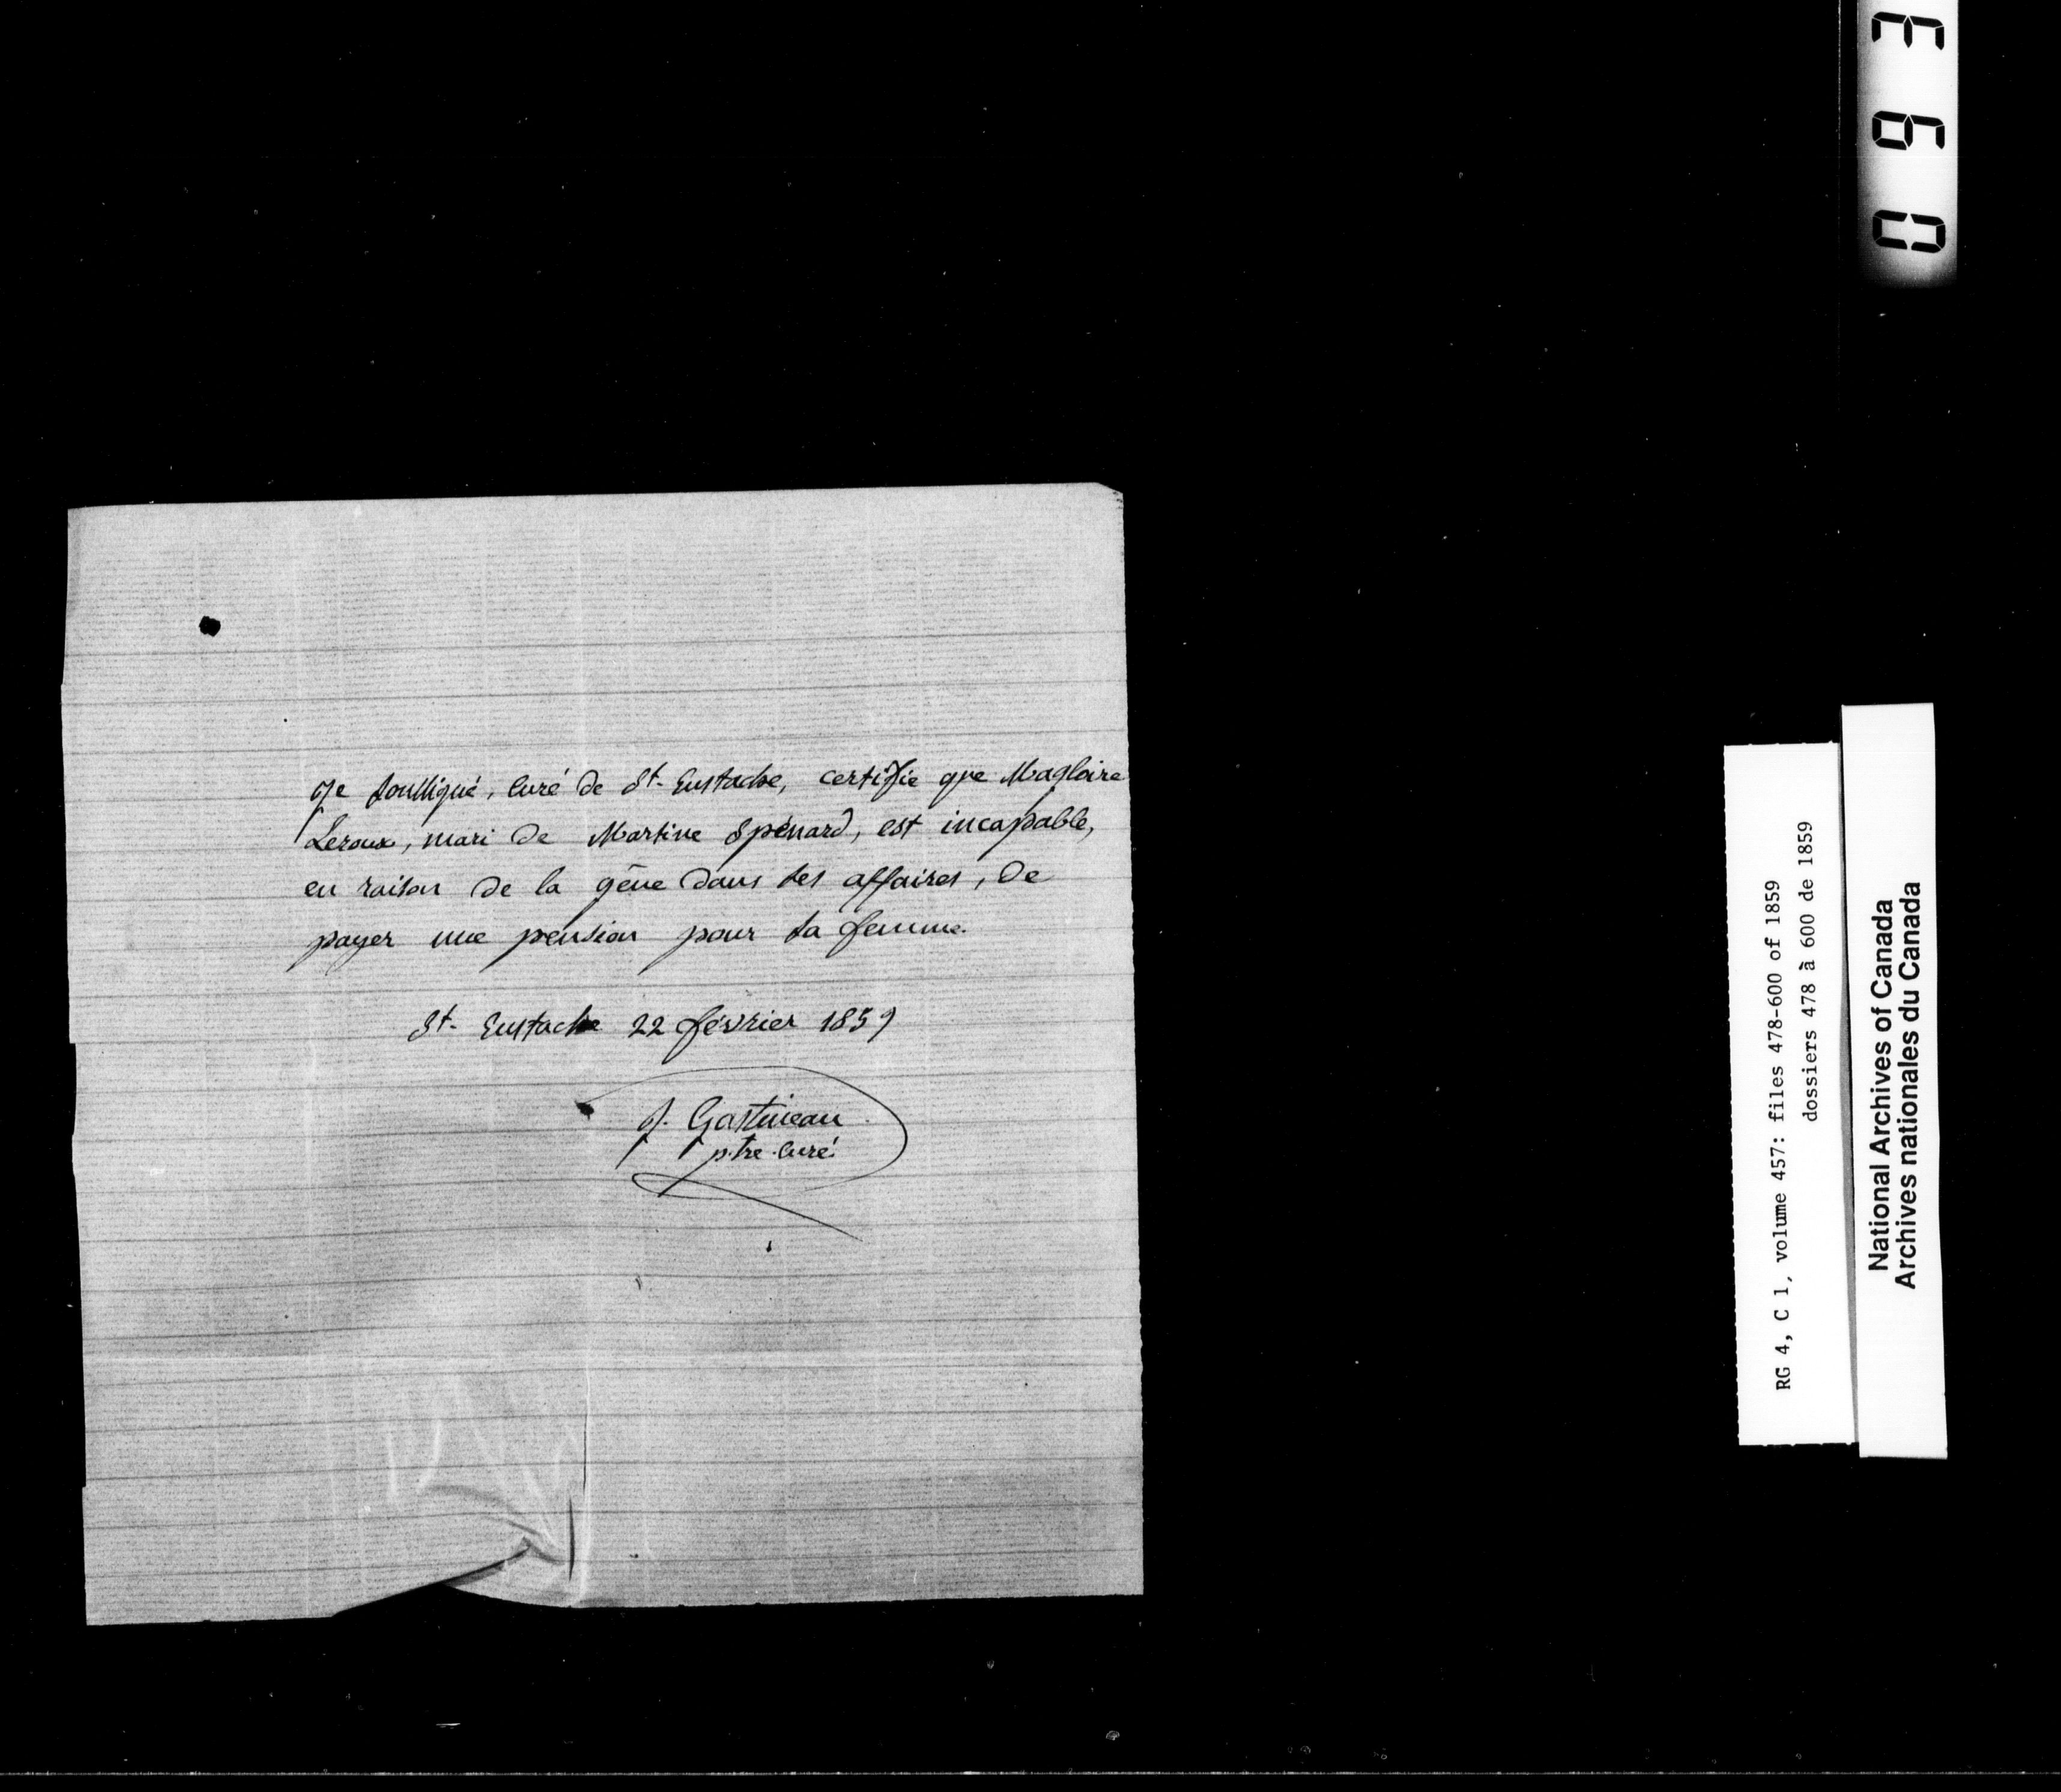 Je soussigné, curé de St. Eustache, certifie que Magloire
Leroux, mari de Martine Spénard, est incapable,
en raison de la gêne dans ses affaires, de
payer une pension pour sa femme.
St. Eustache 22 février 1859
J. Gastineau
ptre-curé
0 6 3
RG 4, C 1, volume 457: files 478-600 of 1859
dossiers 478 à 600 de 1859
National Archives of Canada
Archives nationales du Canada